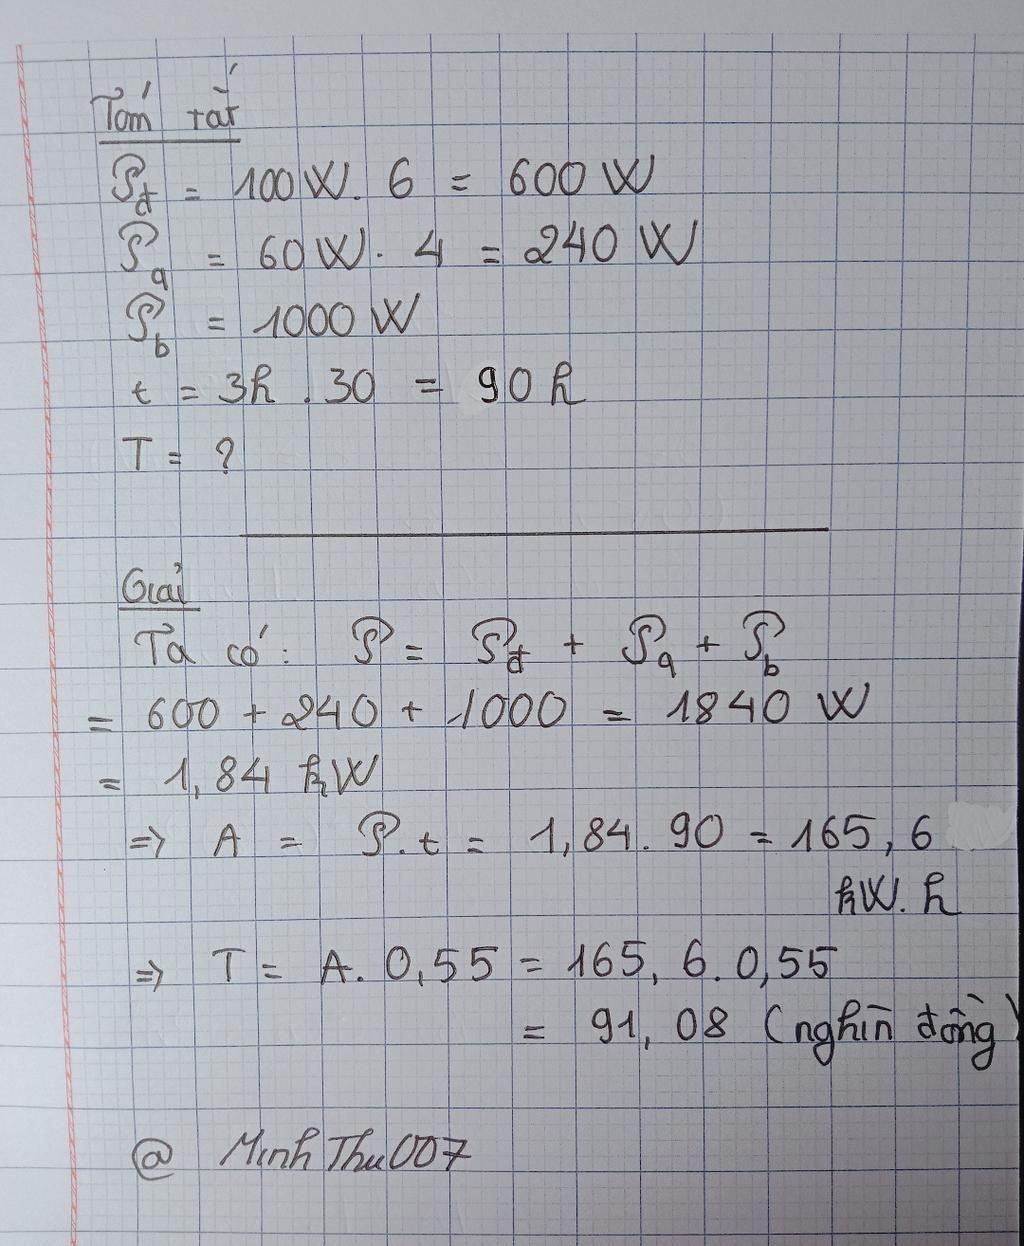 Tóm tắt
P_đ = 100W. 6 = 600 W
P_q = 60W. 4 = 240 W
P_b = 1000 W
t = 3h . 30 = 90 h
T = ?
Giải
Ta có: P = P_đ + P_q + P_b
= 600 + 240 + 1000 = 1840 W
= 1,84 kW
=> A = P.t = 1,84. 90 = 165,6
kW. h
=> T = A. 0,55 = 165,6. 0,55
= 91,08 (nghìn đồng)
@ MinhThu007